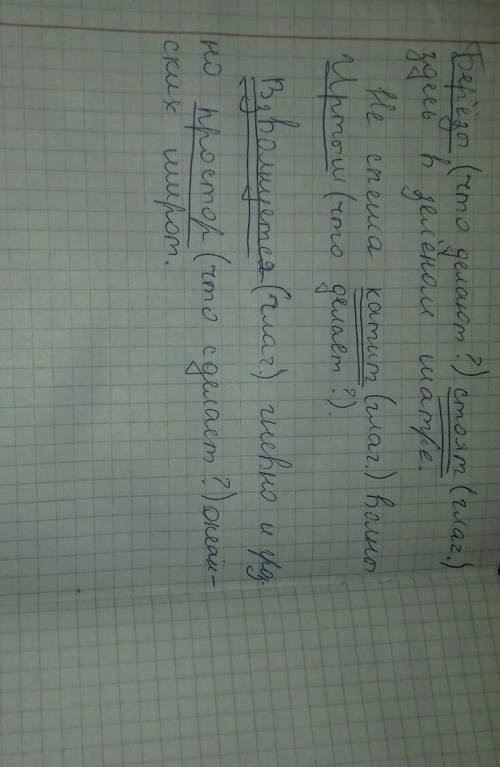 Берёзы (что делают?) стоят (глаг.)
здесь в зелёном шатре.
Не спеша катит (глаг.) волны
Иртыш (что делает?).
Взволнуется (глаг.) гневно и
но простор (что сделает?) океан-
ских широт.